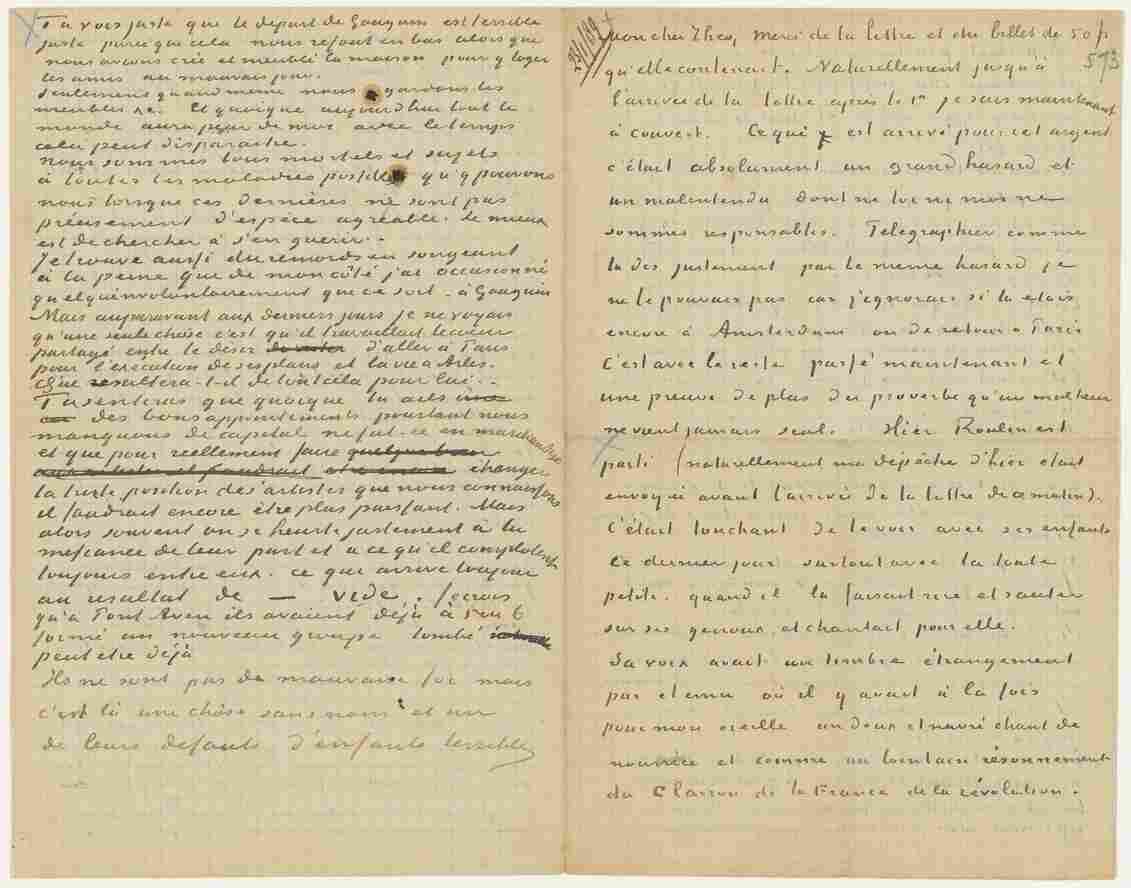 Tu vois juste que le départ de Gauguin est terrible
juste parce que cela nous refout en bas alors que
nous avons créé et meublé la maison pour y loger
les amis au mauvais jour.
Seulement quand meme nous gardons les
meubles &c. Et quoique aujourd'hui tout le
monde aura peur de moi avec le temps
cela peut disparaitre.
Nous sommes tous mortels et sujets
à toutes les maladies possibles qu'y pouvons
nous lorsque ces dernières ne sont pas
précisement d'espèce agréable. le mieux
est de chercher à s'en guerir.
Je trouve aussi du remords en songeant
à la peine que de mon côté j'ai occasionné
quelqu'involontairement que ce soit – à Gauguin
Mais auparavant aux derniers jours je ne voyais
qu'une seule chose c'est qu'il travaillait le coeur
partagé entre le désir d'aller à Paris
pour l'exécution de ses plans et la vie à Arles.
Que resultera-t-il de tout cela pour lui. –
Tu sentiras que quoique tu aies
des bons appointements pourtant nous
manquons de capital ne fut-ce en marchandise
et que pour réellement faire changer
la triste position des artistes que nous connaissons
il faudrait encore être plus puissant. Mais
alors souvent on se heurte justement à la
mefiance de leur part et à ce qu'ils complotent
toujours entre eux. ce qui arrive toujours
au resultat de — vide. Je crois
qu'à Pont Aven ils avaient déjà à 5 ou 6
formé un nouveau groupe tombé
peut etre déjà
ils ne sont pas de mauvaise foi mais
c'est là une chôse sans nom et un
de leurs defauts d'enfants terribles
23/1/89
573
mon cher Theo, merci de la lettre et du billet de 50 fr
qu'elle contenait. Naturellement jusqu'à
l'arrivée de la lettre après le 1er je suis maintenant
à couvert. Ce qui est arrivé pour cet argent
c'était absolument un grand hasard et
un malentendu dont ni toi ni moi ne
sommes responsables. Telegraphier comme
tu dis justement par le meme hasard je
ne le pouvais pas car j'ignorais si tu etais
encore à Amsterdam ou de retour à Paris
C'est avec le reste passé maintenant et
une preuve de plus du proverbe qu'un malheur
ne vient jamais seul. Hier Roulin est
parti (naturellement ma dépêche d'hier etait
envoyé avant l'arrivée de la lettre de ce matin).
C'était touchant de le voir avec ses enfants
ce dernier jour surtout avec la toute
petite quand il la faisait rire et sauter
sur ses genoux et chantait pour elle.
Sa voix avait un timbre étrangement
pur et emu où il y avait à la fois
pour mon oreille un doux et navré chant de
nourrice et comme un lointain résonnement
du Clairon de la France de la révolution.